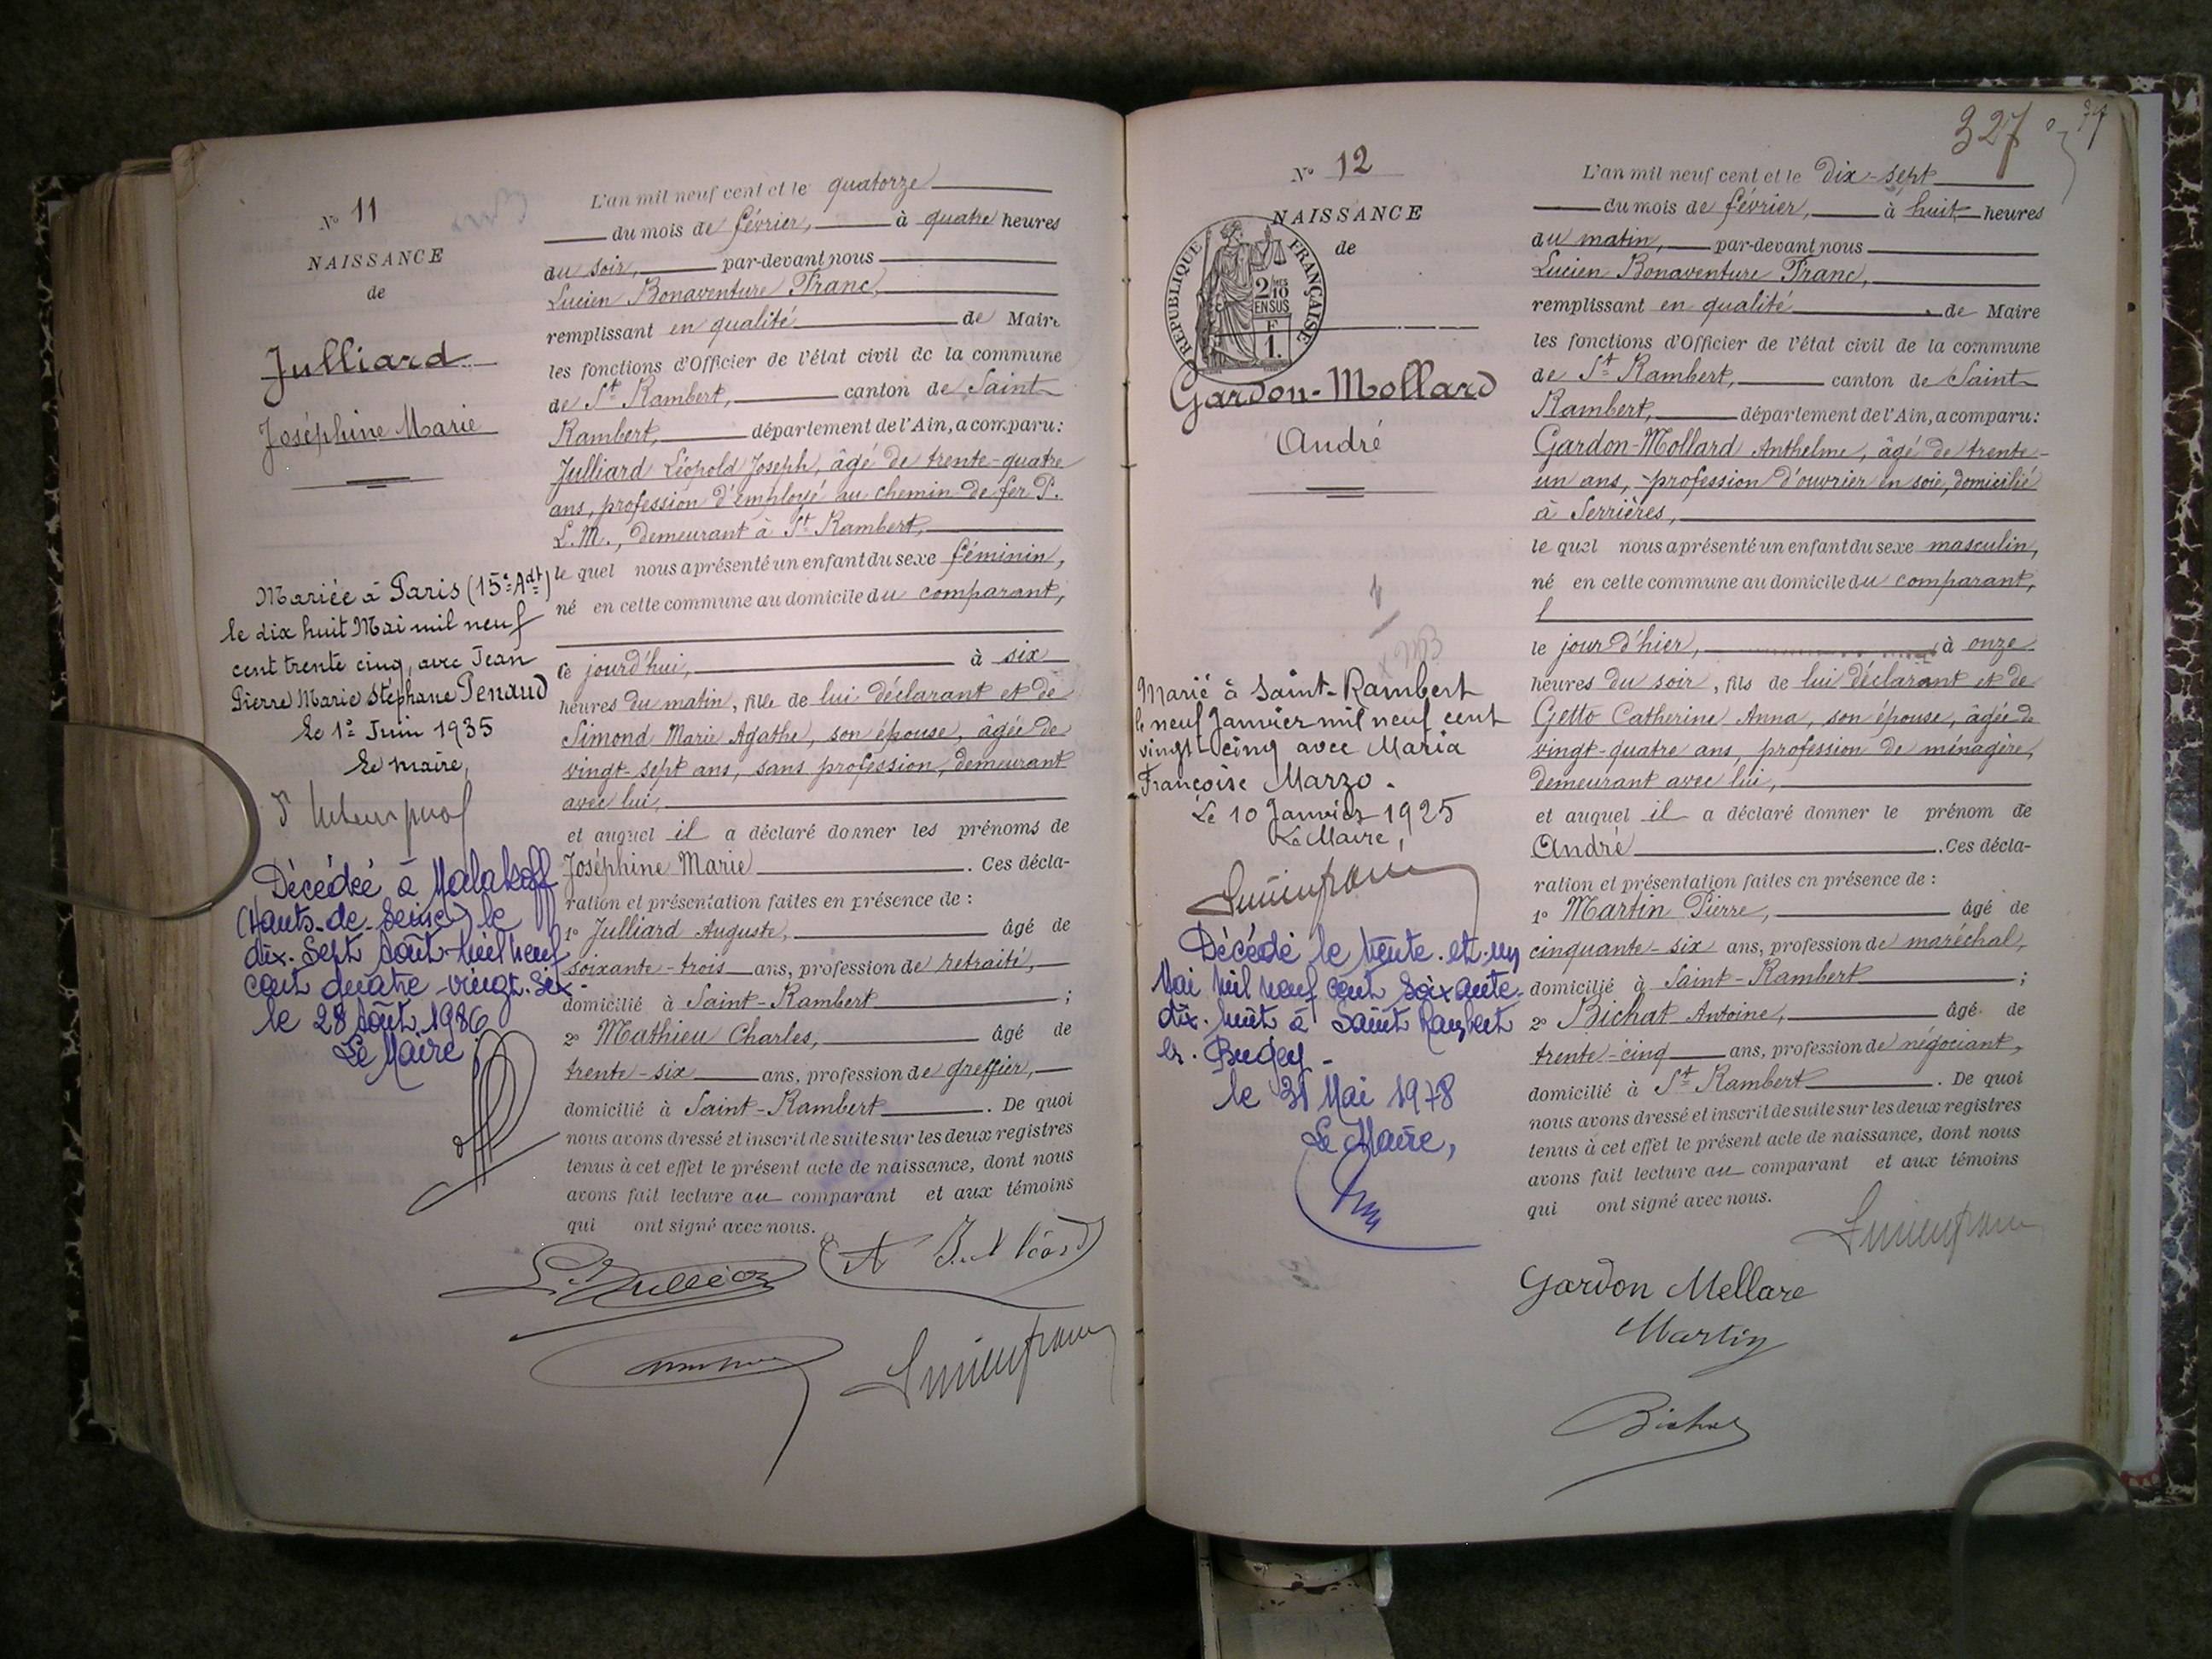 N° 11
NAISSANCE
de
Julliard
Joséphine Marie
Mariée à Paris (15e Adt)
le dix huit Mai mil neuf
cent trente cinq, avec Jean
Pierre Marie Stéphane Penaud
Le 1er Juin 1935
Le maire,
Décédée à Malakoff
(Hauts-de-Seine) le
dix-Sept Août mil neuf
cent quatre-vingt-six
le 28 Août 1986
Le Maire
L'an mil neuf cent et le quatorze
du mois de février, à quatre heures
du soir, par-devant nous
Lucien Bonaventure Franc,
remplissant en qualité de Maire
les fonctions d'Officier de l'état civil de la commune
de St Rambert, canton de Saint-
Rambert, département de l'Ain, a comparu:
Julliard Léopold Joseph, âgé de trente-quatre
ans, profession d'employé au chemin de fer P.
L.M., demeurant à St Rambert,
le quel nous a présenté un enfant du sexe féminin,
né en cette commune au domicile du comparant,
ce jourd'hui, à six
heures du matin, fille de lui déclarant et de
Simond Marie Agathe, son épouse, âgée de
vingt-sept ans, sans profession, demeurant
avec lui,
et auquel il a déclaré donner les prénoms de
Joséphine Marie. Ces décla-
ration et présentation faites en présence de :
1° Julliard Auguste, âgé de
soixante-trois ans, profession de retraité,
domicilié à Saint-Rambert ;
2° Mathieu Charles, âgé de
trente-six ans, profession de greffier,
domicilié à Saint-Rambert. De quoi
nous avons dressé et inscrit de suite sur les deux registres
tenus à cet effet le présent acte de naissance, dont nous
avons fait lecture au comparant et aux témoins
qui ont signé avec nous.
327
N° 12
NAISSANCE
de
RÉPUBLIQUE FRANÇAISE
2/10 EN SUS
F
1.
Gardon-Mollard
André
Marié à Saint-Rambert
le neuf Janvier mil neuf cent
vingt-cinq avec Maria
Françoise Marzo.
Le 10 Janvier 1925
Le Maire,
Décédé le trente-et-un
Mai mil neuf cent soixante-
dix-huit à Saint Rambert
en-Bugey -
le 31 Mai 1978
Le Maire,
L'an mil neuf cent et le dix-sept
du mois de février, à huit heures
du matin, par-devant nous
Lucien Bonaventure Franc,
remplissant en qualité de Maire
les fonctions d'Officier de l'état civil de la commune
de St Rambert, canton de Saint-
Rambert, département de l'Ain, a comparu:
Gardon-Mollard Anthelme, âgé de trente-
un ans, profession d'ouvrier en soie, domicilié
à Serrières,
le quel nous a présenté un enfant du sexe masculin,
né en cette commune au domicile du comparant,
le jour d'hier, à onze
heures du soir, fils de lui déclarant et de
Getto Catherine Anna, son épouse, âgée de
vingt-quatre ans, profession de ménagère,
demeurant avec lui,
et auquel il a déclaré donner le prénom de
André. Ces décla-
ration et présentation faites en présence de :
1° Martin Pierre, âgé de
cinquante-six ans, profession de maréchal,
domicilié à Saint-Rambert ;
2° Bichat Antoine, âgé de
trente-cinq ans, profession de négociant,
domicilié à St Rambert. De quoi
nous avons dressé et inscrit de suite sur les deux registres
tenus à cet effet le présent acte de naissance, dont nous
avons fait lecture au comparant et aux témoins
qui ont signé avec nous.
Gardon Mellare
Martin
Bichat